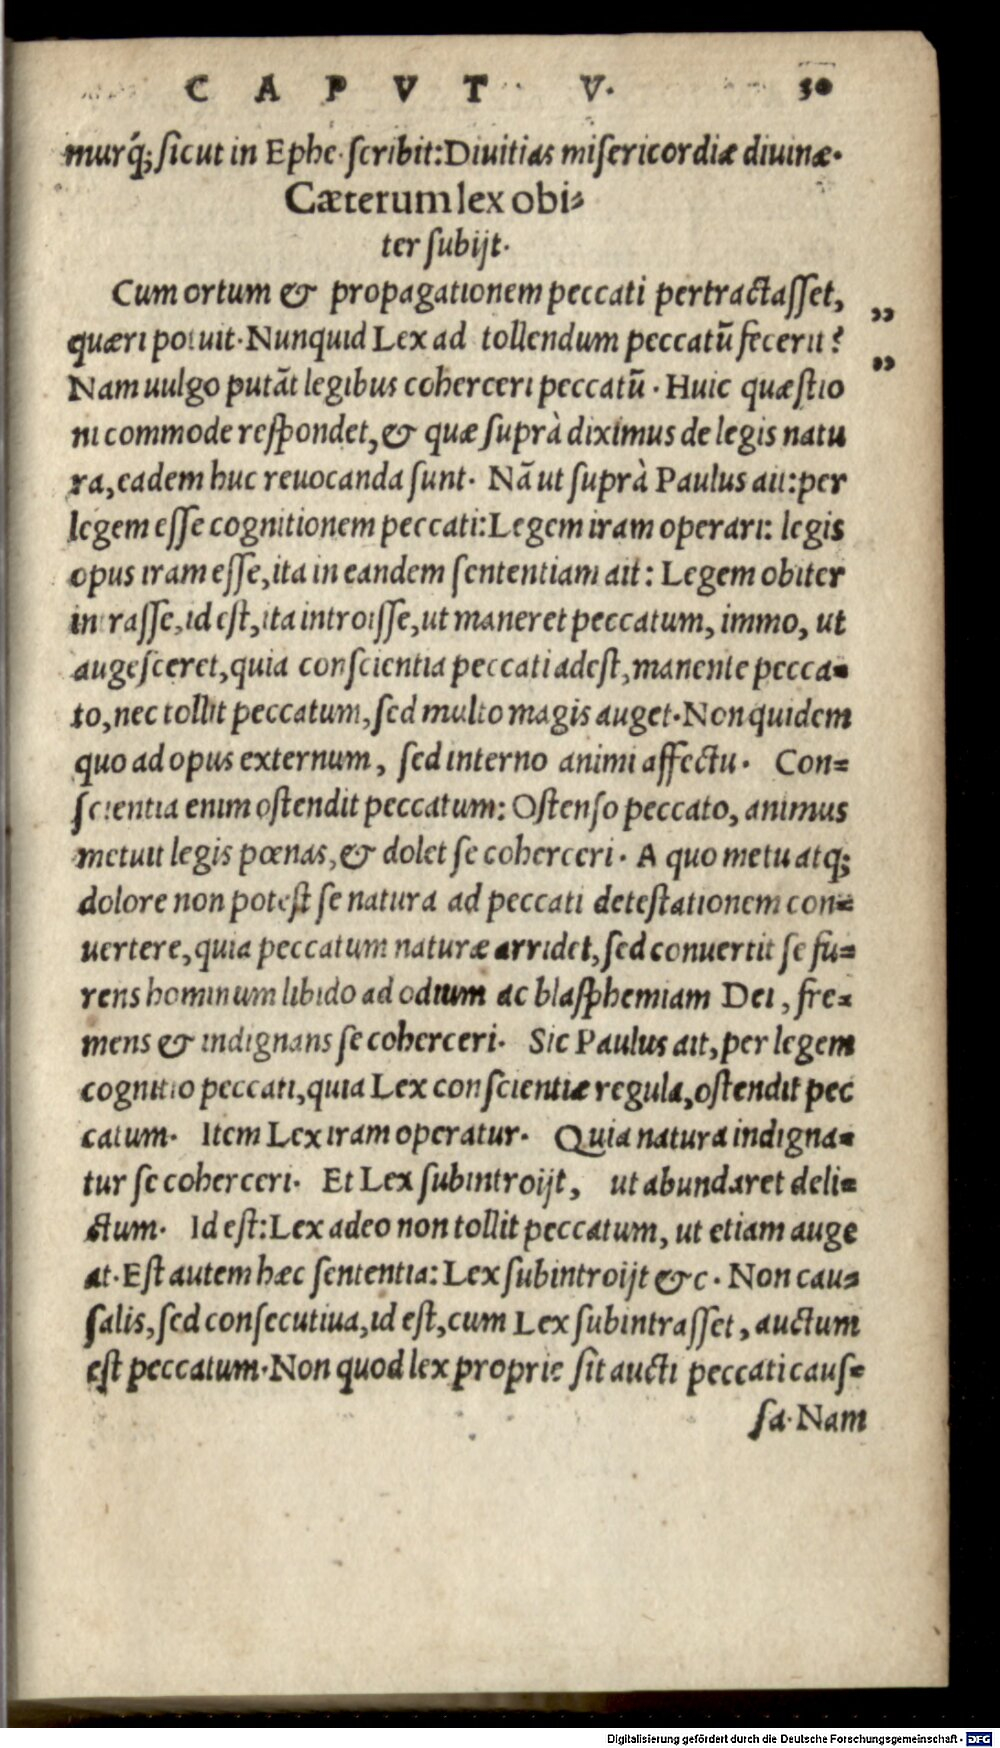 CAPVT V. 50
murq́; sicut in Ephe. scribit: Diuitias misericordiæ diuinæ.
Cæterum lex obi-
ter subijt.
Cum ortum & propagationem peccati pertractasset, „
quæri potuit. Nunquid Lex ad tollendum peccatū fecerit? „
Nam uulgo putāt legibus coherceri peccatū. Huic quæstio
ni commode respondet, & quæ suprà diximus de legis natu
ra, eadem huc reuocanda sunt. Nā ut suprà Paulus ait: per
legem esse cognitionem peccati: Legem iram operari: legis
opus iram esse, ita in eandem sententiam ait: Legem obiter
intrasse, id est, ita introisse, ut maneret peccatum, immo, ut
augesceret, quia conscientia peccati adest, manente pecca-
to, nec tollit peccatum, sed multo magis auget. Non quidem
quo ad opus externum, sed interno animi affectu. Con-
scientia enim ostendit peccatum: Ostenso peccato, animus
metuit legis pœnas, & dolet se coherceri. A quo metu atq;
dolore non potest se natura ad peccati detestationem con-
uertere, quia peccatum naturæ arridet, sed conuertit se fu-
rens hominum libido ad odium ac blasphemiam Dei, fre-
mens & indignans se coherceri. Sic Paulus ait, per legem
cognitio peccati, quia Lex conscientiæ regula, ostendit pec
catum. Item Lex iram operatur. Quia natura indigna-
tur se coherceri. Et Lex subintroijt, ut abundaret deli-
ctum. Id est: Lex adeo non tollit peccatum, ut etiam auge
at. Est autem hæc sententia: Lex subintroijt &c. Non cau-
salis, sed consecutiua, id est, cum Lex subintrasset, auctum
est peccatum. Non quod lex proprie sit aucti peccati caus-
sa. Nam
Digitalisierung gefördert durch die Deutsche Forschungsgemeinschaft - DFG